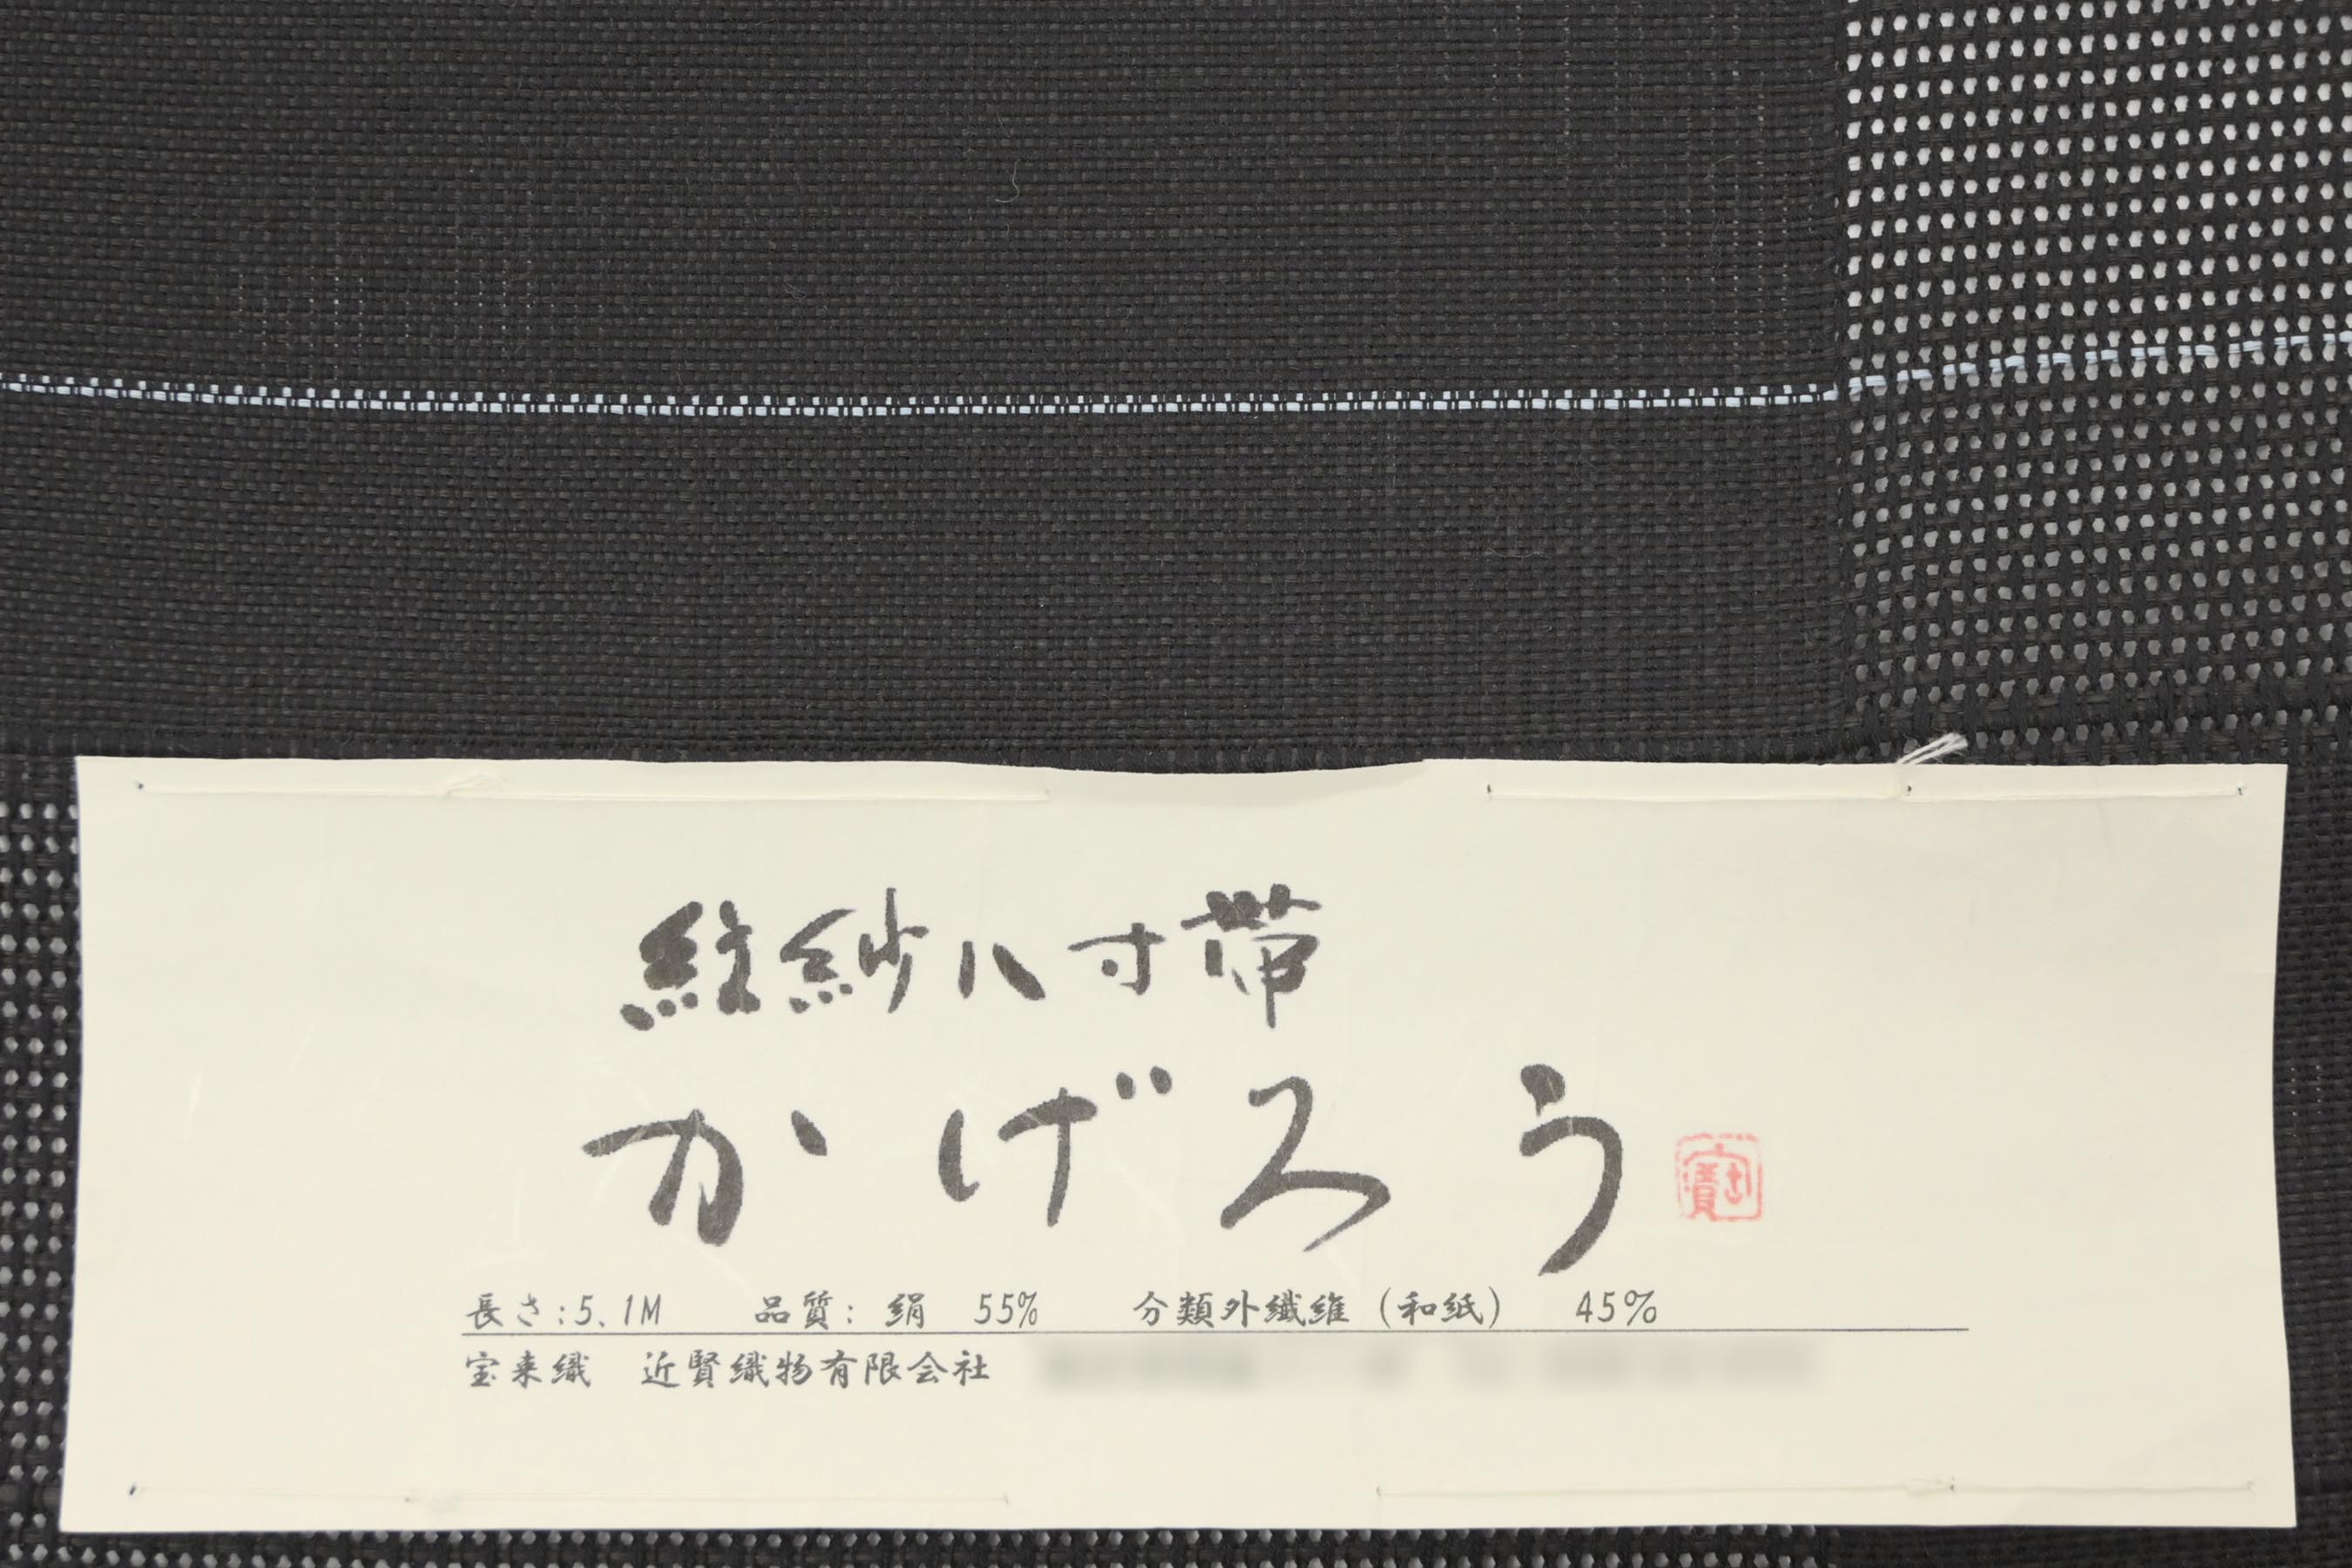 紗八寸帯
かげろう
長さ:5.1M 品質: 絹 55% 分類外繊維 (和紙) 45%
宝来織 近賢織物有限会社